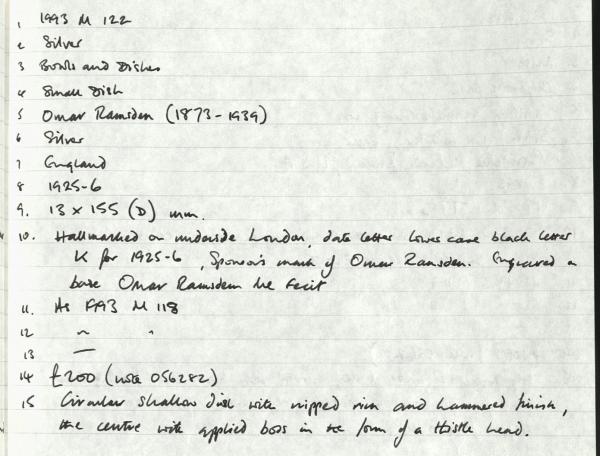 1 1993 M 122
2 Silver
3 Bowls and Dishes
4 Small Dish
5 Omar Ramsden (1873-1939)
6 Silver
7 England
8 1925-6
9. 13 x 155 (D) mm.
10. Hallmarked on underside London, date letter lower case black letter
K for 1925-6, Sponsor's mark of Omar Ramsden. Engraved on
base Omar Ramsden me fecit
11. As 1993 M 118
12 " "
13 —
14 £200 (note 056282)
15 Circular shallow dish with nipped rim and hammered finish,
the centre with applied boss in the form of a thistle head.